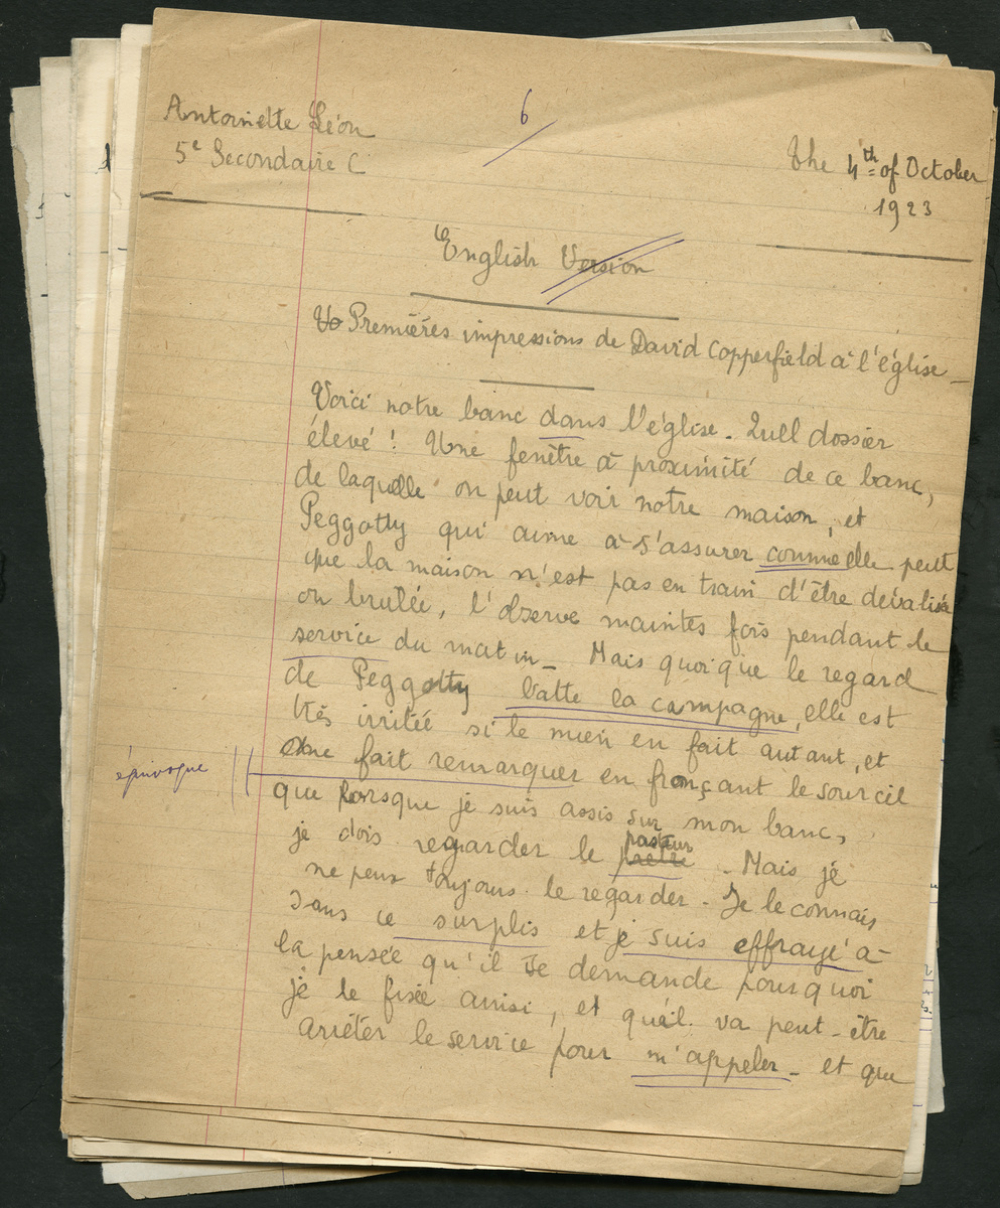 Antoinette Léon
6
5e Secondaire C
The 4th of October
1923
English Version
Premières impressions de David Copperfield à l'église
Voici notre banc dans l'église. Quell dossier
élevé! Une fenêtre à proximité de ce banc,
de laquelle on peut voir notre maison, et
Peggotty qui aime à s'assurer comme elle peut
que la maison n'est pas en train d'être dévalisée
ou brulée, l'observe maintes fois pendant le
service du matin_ Mais quoique le regard
de Peggotty batte la campagne, elle est
très irritée si le mien en fait autant, et
me fait remarquer en fronçant le sourcil
équivoque
que lorsque je suis assis sur mon banc,
je dois regarder le pasteur. Mais je
ne peux toujours le regarder. Je le connais
sans ce surplis et je suis effrayé à
la pensée qu'il se demande pourquoi
je le fixe ainsi, et qu'il va peut-être
arrêter le service pour m'appeler_ et que